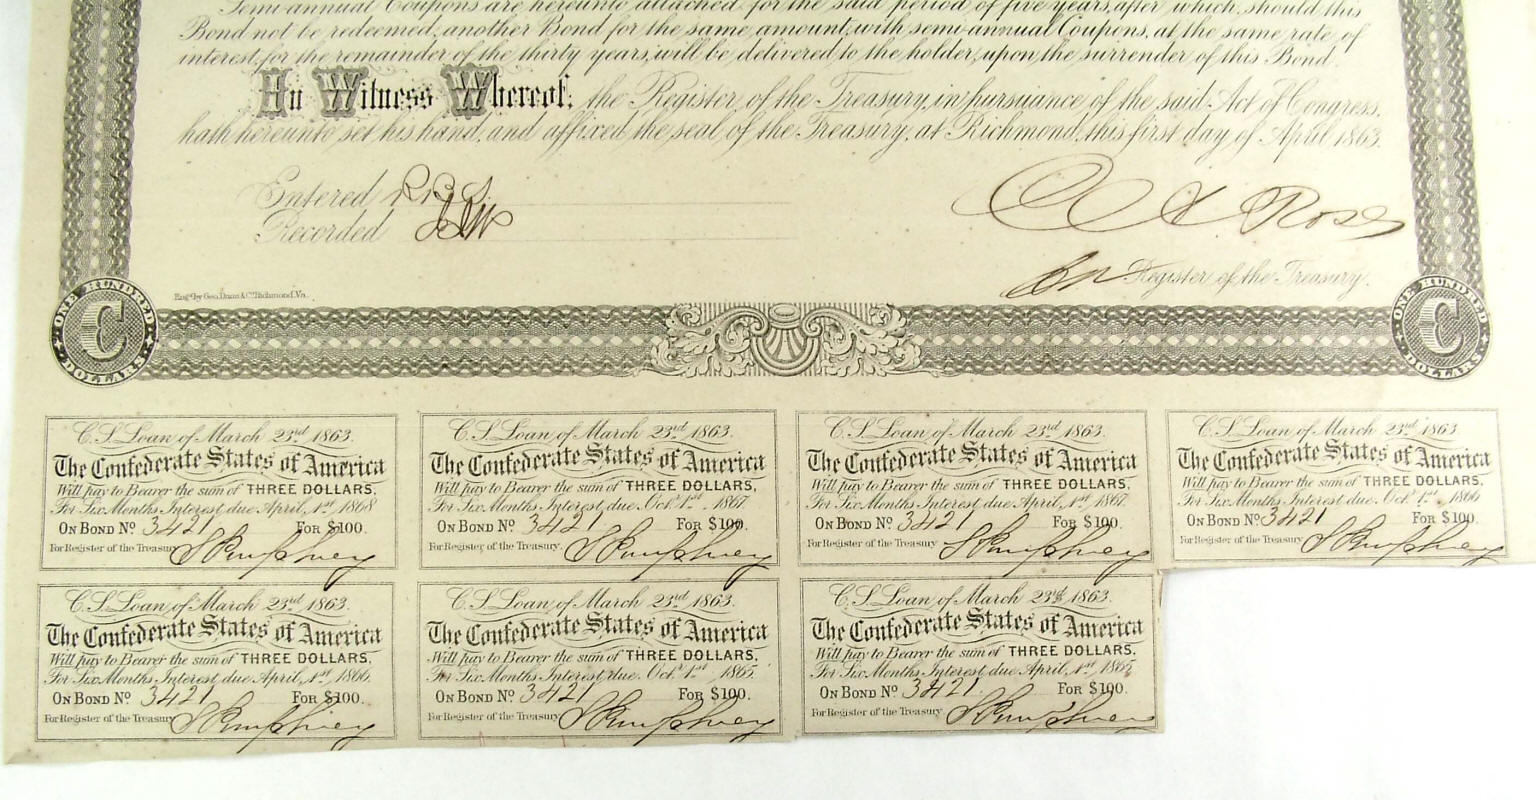 Semi-annual Coupons are hereunto attached for the said period of five years, after which, should this
Bond not be redeemed, another Bond for the same amount, with semi-annual Coupons, at the same rate of
interest, for the remainder of the thirty years, will be delivered to the holder, upon the surrender of this Bond.
In Witness Whereof, the Register of the Treasury, in pursuance of the said Act of Congress,
hath hereunto set his hand, and affixed the seal of the Treasury, at Richmond, this first day of April 1863.
Entered
Recorded
Rose
Register of the Treasury.
Eng'd by Geo. Dunn & Co. Richmond, Va.
ONE HUNDRED DOLLARS
C
ONE HUNDRED DOLLARS
C
C. S. Loan of March 23rd 1863.
The Confederate States of America
Will pay to Bearer the sum of THREE DOLLARS,
For Six Months Interest due April, 1st 1868
ON BOND No 3421 FOR $100.
For Register of the Treasury
C. S. Loan of March 23rd 1863.
The Confederate States of America
Will pay to Bearer the sum of THREE DOLLARS,
For Six Months Interest due Oct. 1st 1867.
ON BOND No 3421 FOR $100.
For Register of the Treasury.
C. S. Loan of March 23rd 1863.
The Confederate States of America
Will pay to Bearer the sum of THREE DOLLARS,
For Six Months Interest due April, 1st 1867.
ON BOND No 3421 FOR $100.
For Register of the Treasury
C. S. Loan of March 23rd 1863.
The Confederate States of America
Will pay to Bearer the sum of THREE DOLLARS,
For Six Months Interest due Oct. 1st 1866
ON BOND No 3421 FOR $100.
For Register of the Treasury
C. S. Loan of March 23rd 1863.
The Confederate States of America
Will pay to Bearer the sum of THREE DOLLARS,
For Six Months Interest due April, 1st 1866.
ON BOND No 3421 FOR $100.
For Register of the Treasury
C. S. Loan of March 23rd 1863.
The Confederate States of America
Will pay to Bearer the sum of THREE DOLLARS,
For Six Months Interest due Oct. 1st 1865.
ON BOND No 3421 FOR $100.
For Register of the Treasury
C. S. Loan of March 23rd 1863.
The Confederate States of America
Will pay to Bearer the sum of THREE DOLLARS,
For Six Months Interest due April, 1st 1865
ON BOND No 3421 FOR $100.
For Register of the Treasury.